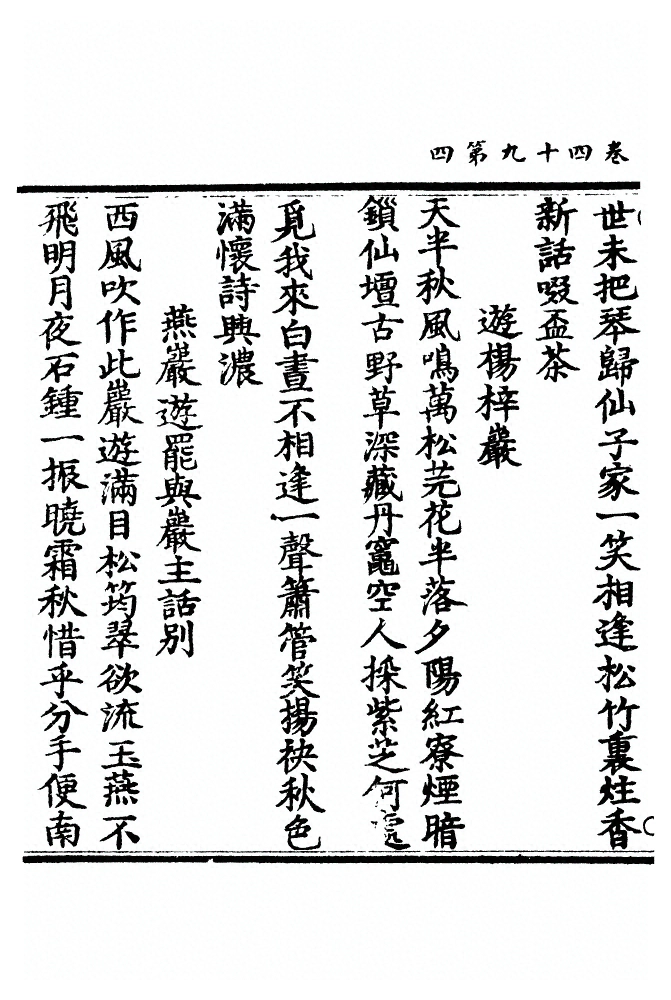 卷四十九第四
世未把琴歸仙子家一笑相逢松竹裏炷香
新話啜盃茶
遊楊梓巖
天半秋風鳴萬松芫花半落夕陽紅寮煙暗
鎖仙壇古野草深藏丹竈空人採紫芝何處
覓我來白晝不相逢一聲簫管笑揚袂秋色
滿懷詩興濃
燕巖遊罷與巖主話別
西風吹作此巖遊滿目松筠翠欲流玉燕不
飛明月夜石鍾一振曉霜秋惜乎分手便南